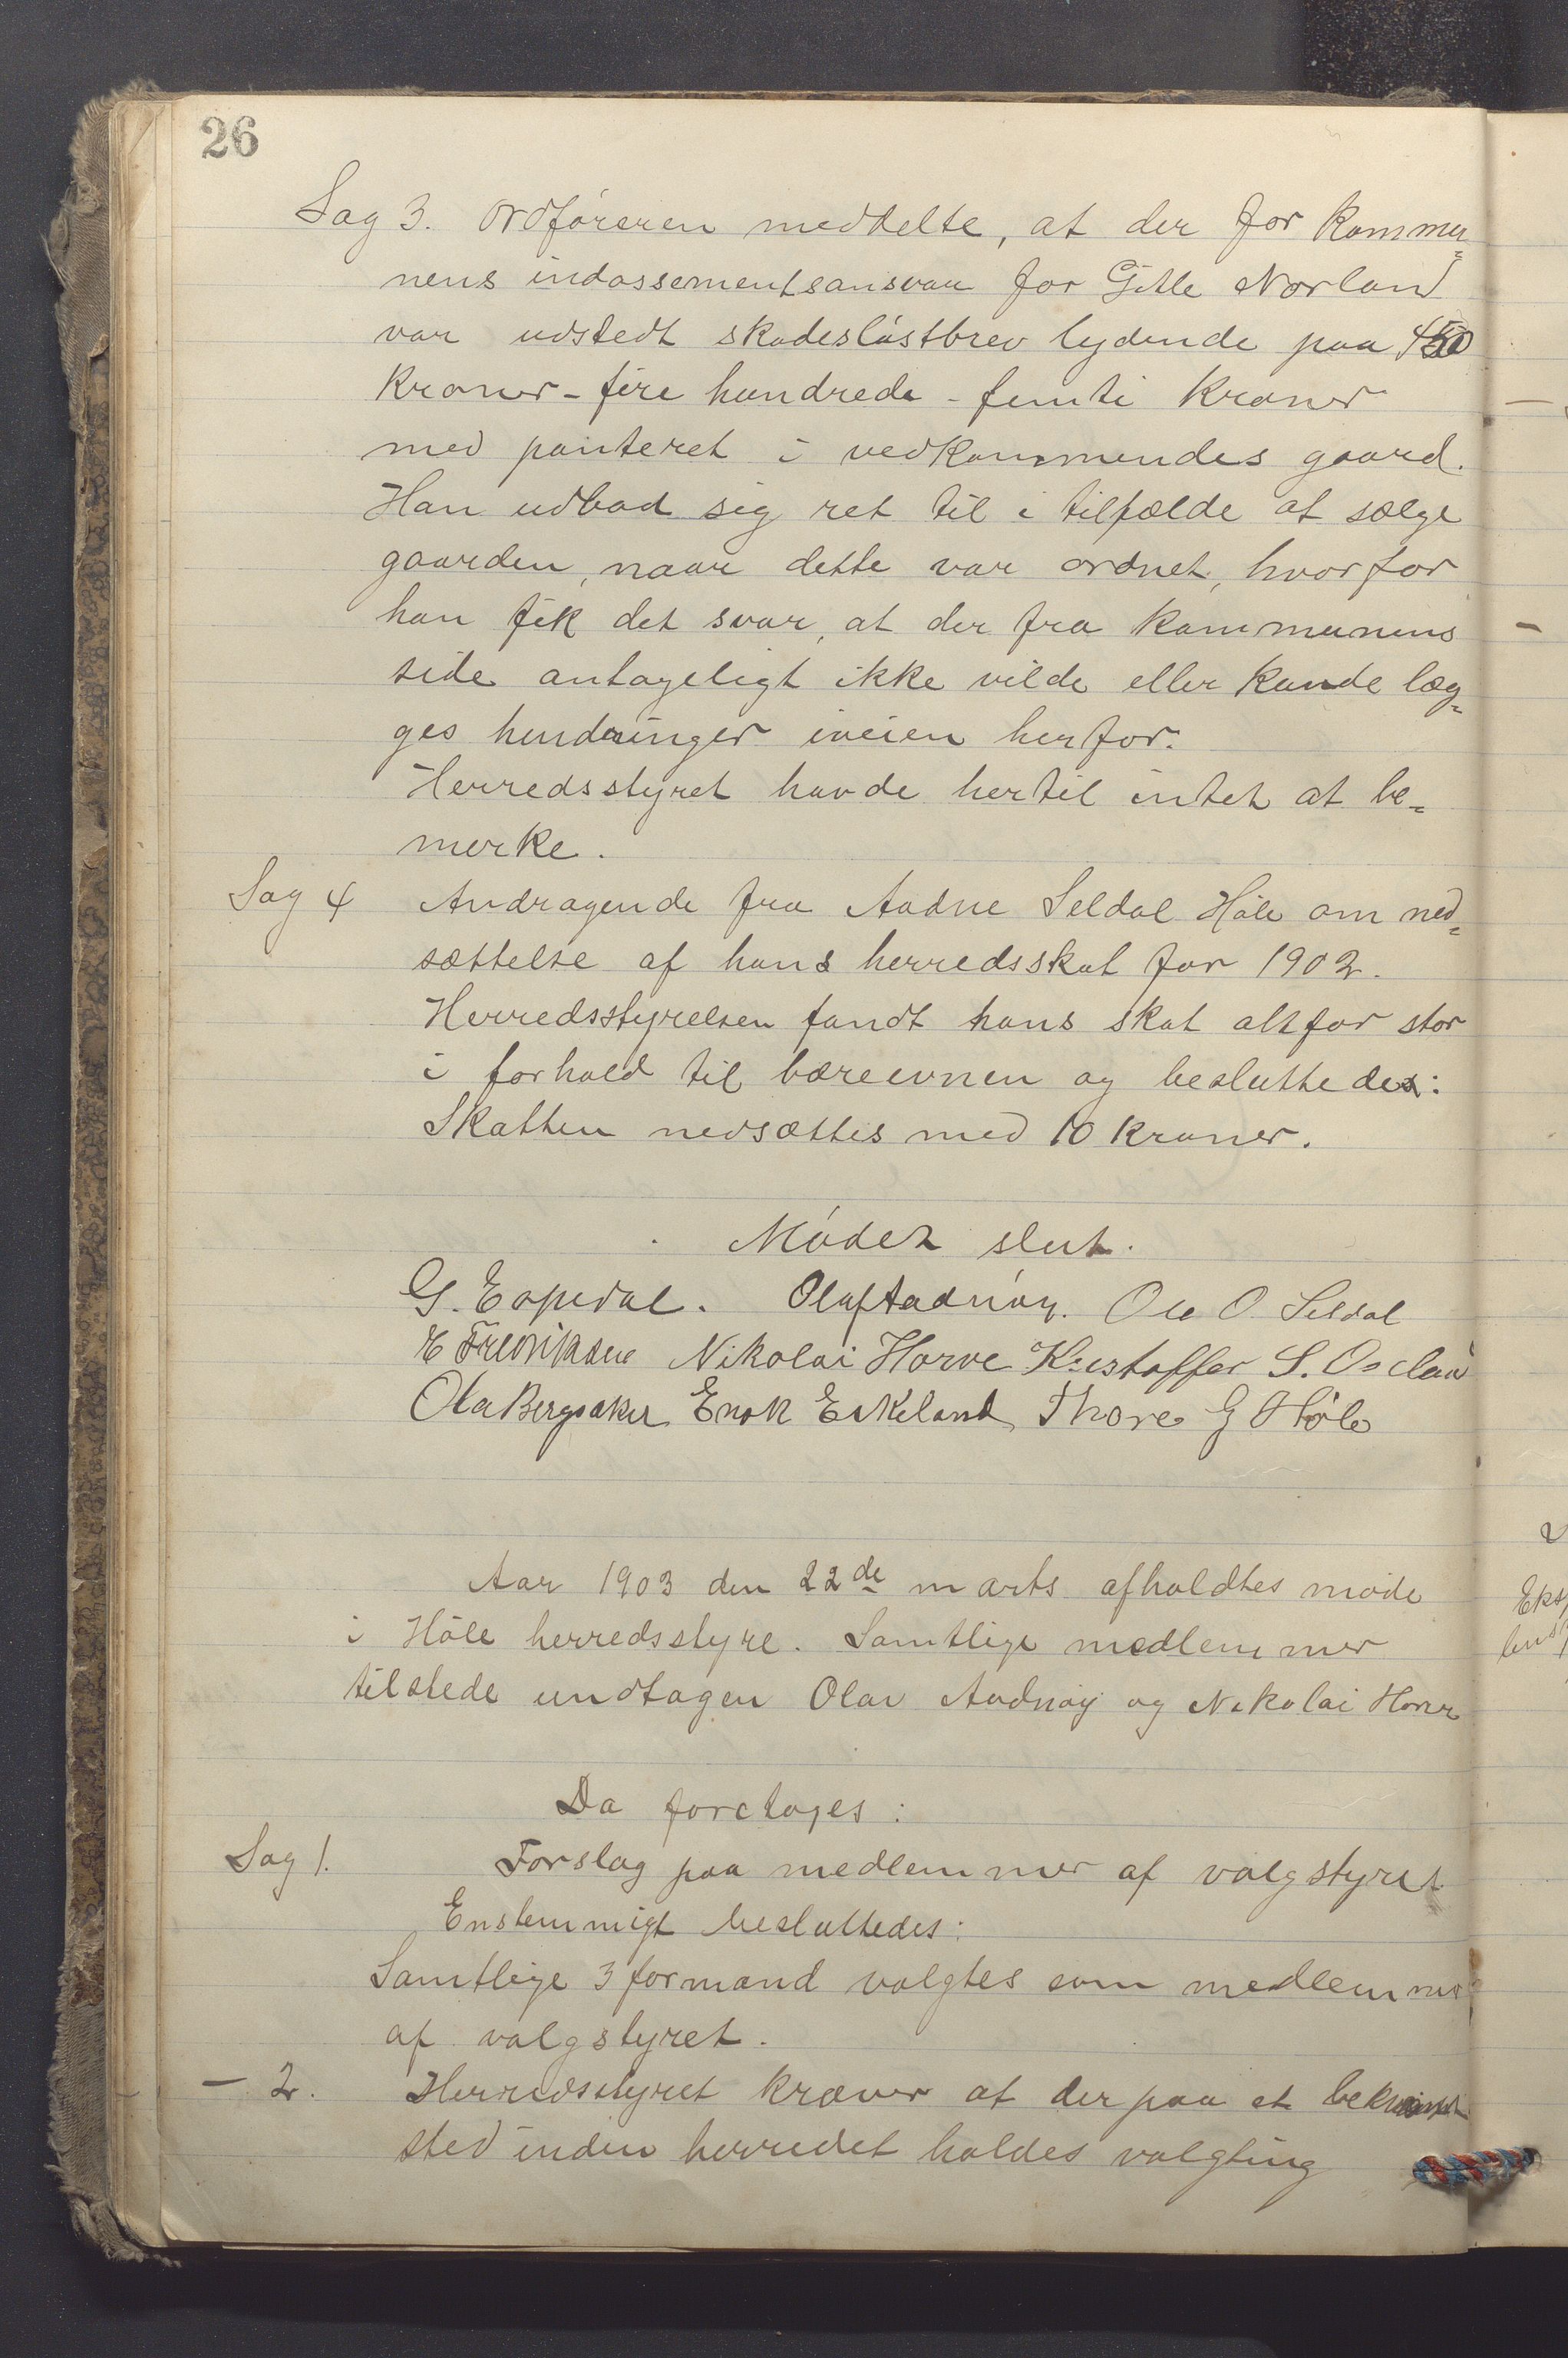 26
Sag 3. Ordføreren meddelte, at der for kommu=
nens indossementsansvar for Gitle Norland
var udstedt skadesløstbrev lydende paa 450
kroner - fire hundrede - femti kroner
med panteret i vedkommendes gaard.
Han udbad sig ret til i tilfælde at sælge
gaarden, naar dette var ordnet, hvorfor
han fik det svar, at der fra kommunens
side antageligt ikke vilde eller kunde læg=
ges hindringer iveien herfor.
Herredsstyret havde hertil intet at be=
merke.
Sag 4 Andragende fra Aadne Seldal Høle om ned=
sættelse af hans herredsskat for 1902.
Herredsstyrelsen fandt hans skat altfor stor
i forhold til bæreevnen og besluttedes:
Skatten nedsættes med 10 kroner.
Mødet slut.
G. Espedal. Olaf Aadnøy. Ole O. Seldal
E Fredriksen Nikolai Horve Kristoffer S. Osland
Ola Bergsaker Enok Eskeland Thore G Høle
Aar 1903 den 22de marts afholdtes møde
i Høle herredsstyre. Samtlige medlemmer
tilstede undtagen Olav Aadnøy og Nikolai Horve
Da foretoges:
Sag 1. Forslag paa medlemmer af valgstyret
Enstemmigt besluttedes:
Samtlige 3 formænd valgtes som medlemmer
af valgstyret.
- 2. Herredsstyret kræver at der paa et bekvemt
sted inden herredet holdes valgting